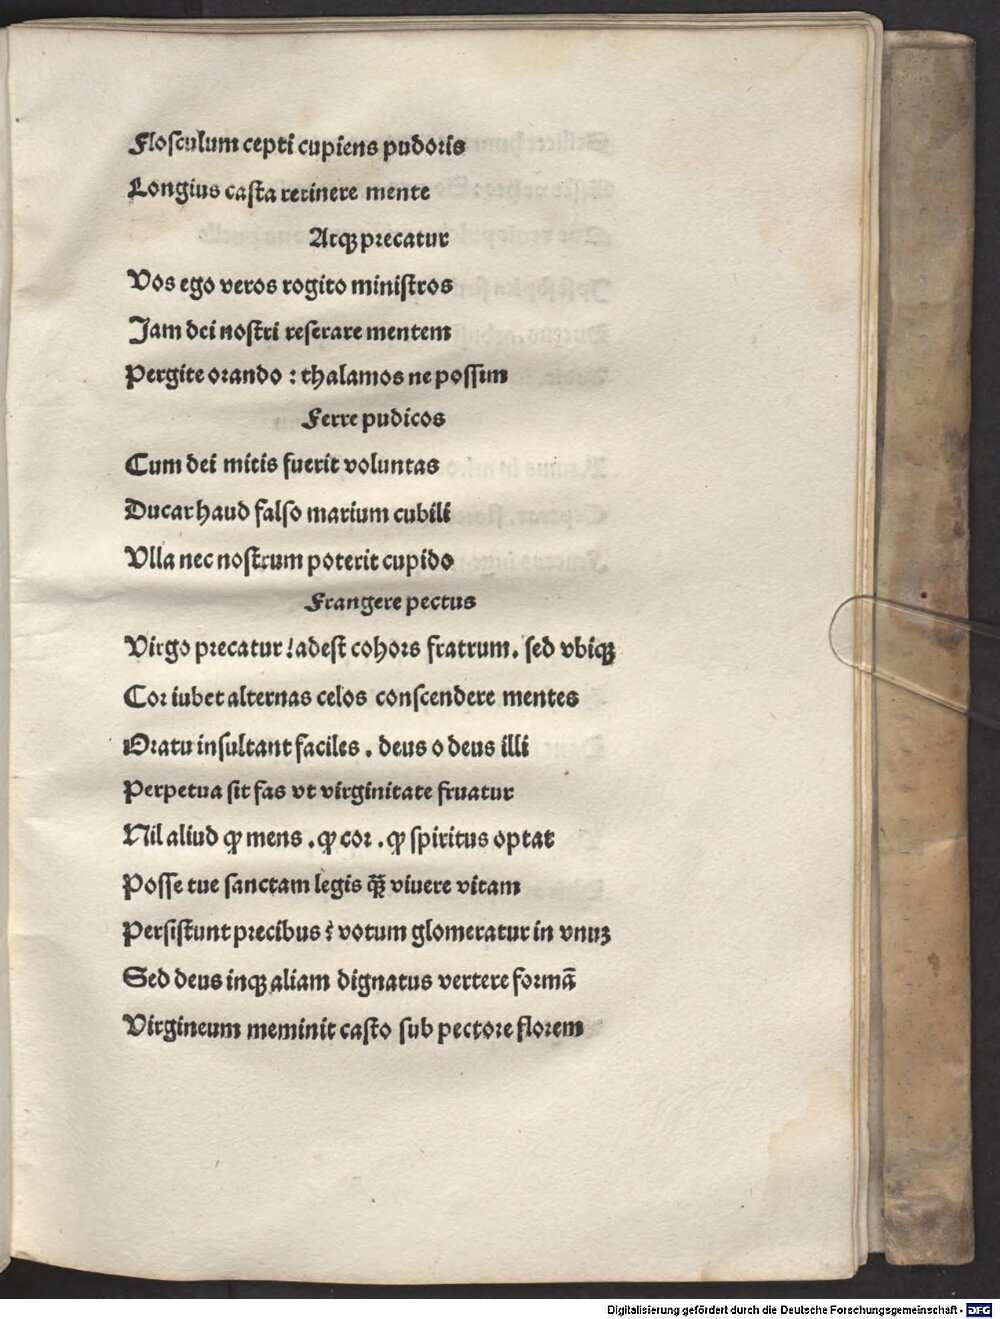 Floſculum cepti cupiens pudoris
Longius caſta retinere mente
Atqꝫ precatur
Vos ego veros rogito miniſtros
Jam dei noſtri reſerare mentem
Pergite orando : thalamos ne poſſim
Ferre pudicos
Cum dei mitis fuerit voluntas
Ducar haud falſo marium cubili
Vlla nec noſtrum poterit cupido
Frangere pectus
Virgo precatur ! adeſt cohors fratrum. ſed vbiqꝫ
Cor iubet alternas celos conſcendere mentes
Oratu inſultant faciles . deus o deus illi
Perpetua ſit fas vt virginitate fruatur
Nil aliud ꝙ mens . ꝙ cor . ꝙ ſpiritus optat
Poſſe tue ſanctam legis viuere vitam
Perſiſtunt precibus votum glomeratur in vnuꝫ
Sed deus inqꝫ aliam dignatus vertere formā
Virgineum meminit caſto ſub pectore florem
Digitalisierung gefördert durch die Deutsche Forschungsgemeinschaft - DFG